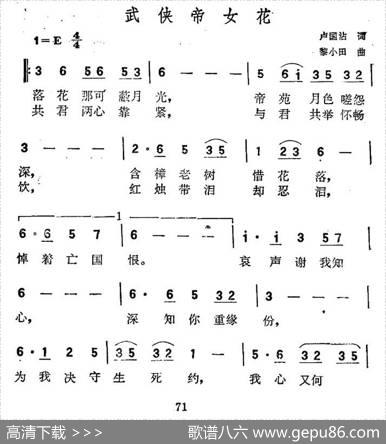 武侠帝女花
1=E 4/4
卢国沾 词
黎小田 曲
3 6 56 53 | 6 - - - | 5 6i 35 35 |
落花那可蔽月光， 帝苑月色嗟怨
共君两心靠紧， 与君共举怀畅
3 - - - | 2· 6 5 (35) | 1 23 6 - |
深， 含樟老树 惜花落，
饮， 红烛带泪 却忍泪，
1
6· 6 5 7 | 6 - - - | i· i 3 57 |
悼着亡国 恨。 哀声谢我知
6 - - - | 6· 6 5 32 | 3 - - - |
心， 深知你重缘 份，
6·1 2 5 | 35 32 6 - | 6 5 32 35 |
为我决守生死约， 我心又何
71
高清下载 >>>
歌谱八六 www.gepu86.com